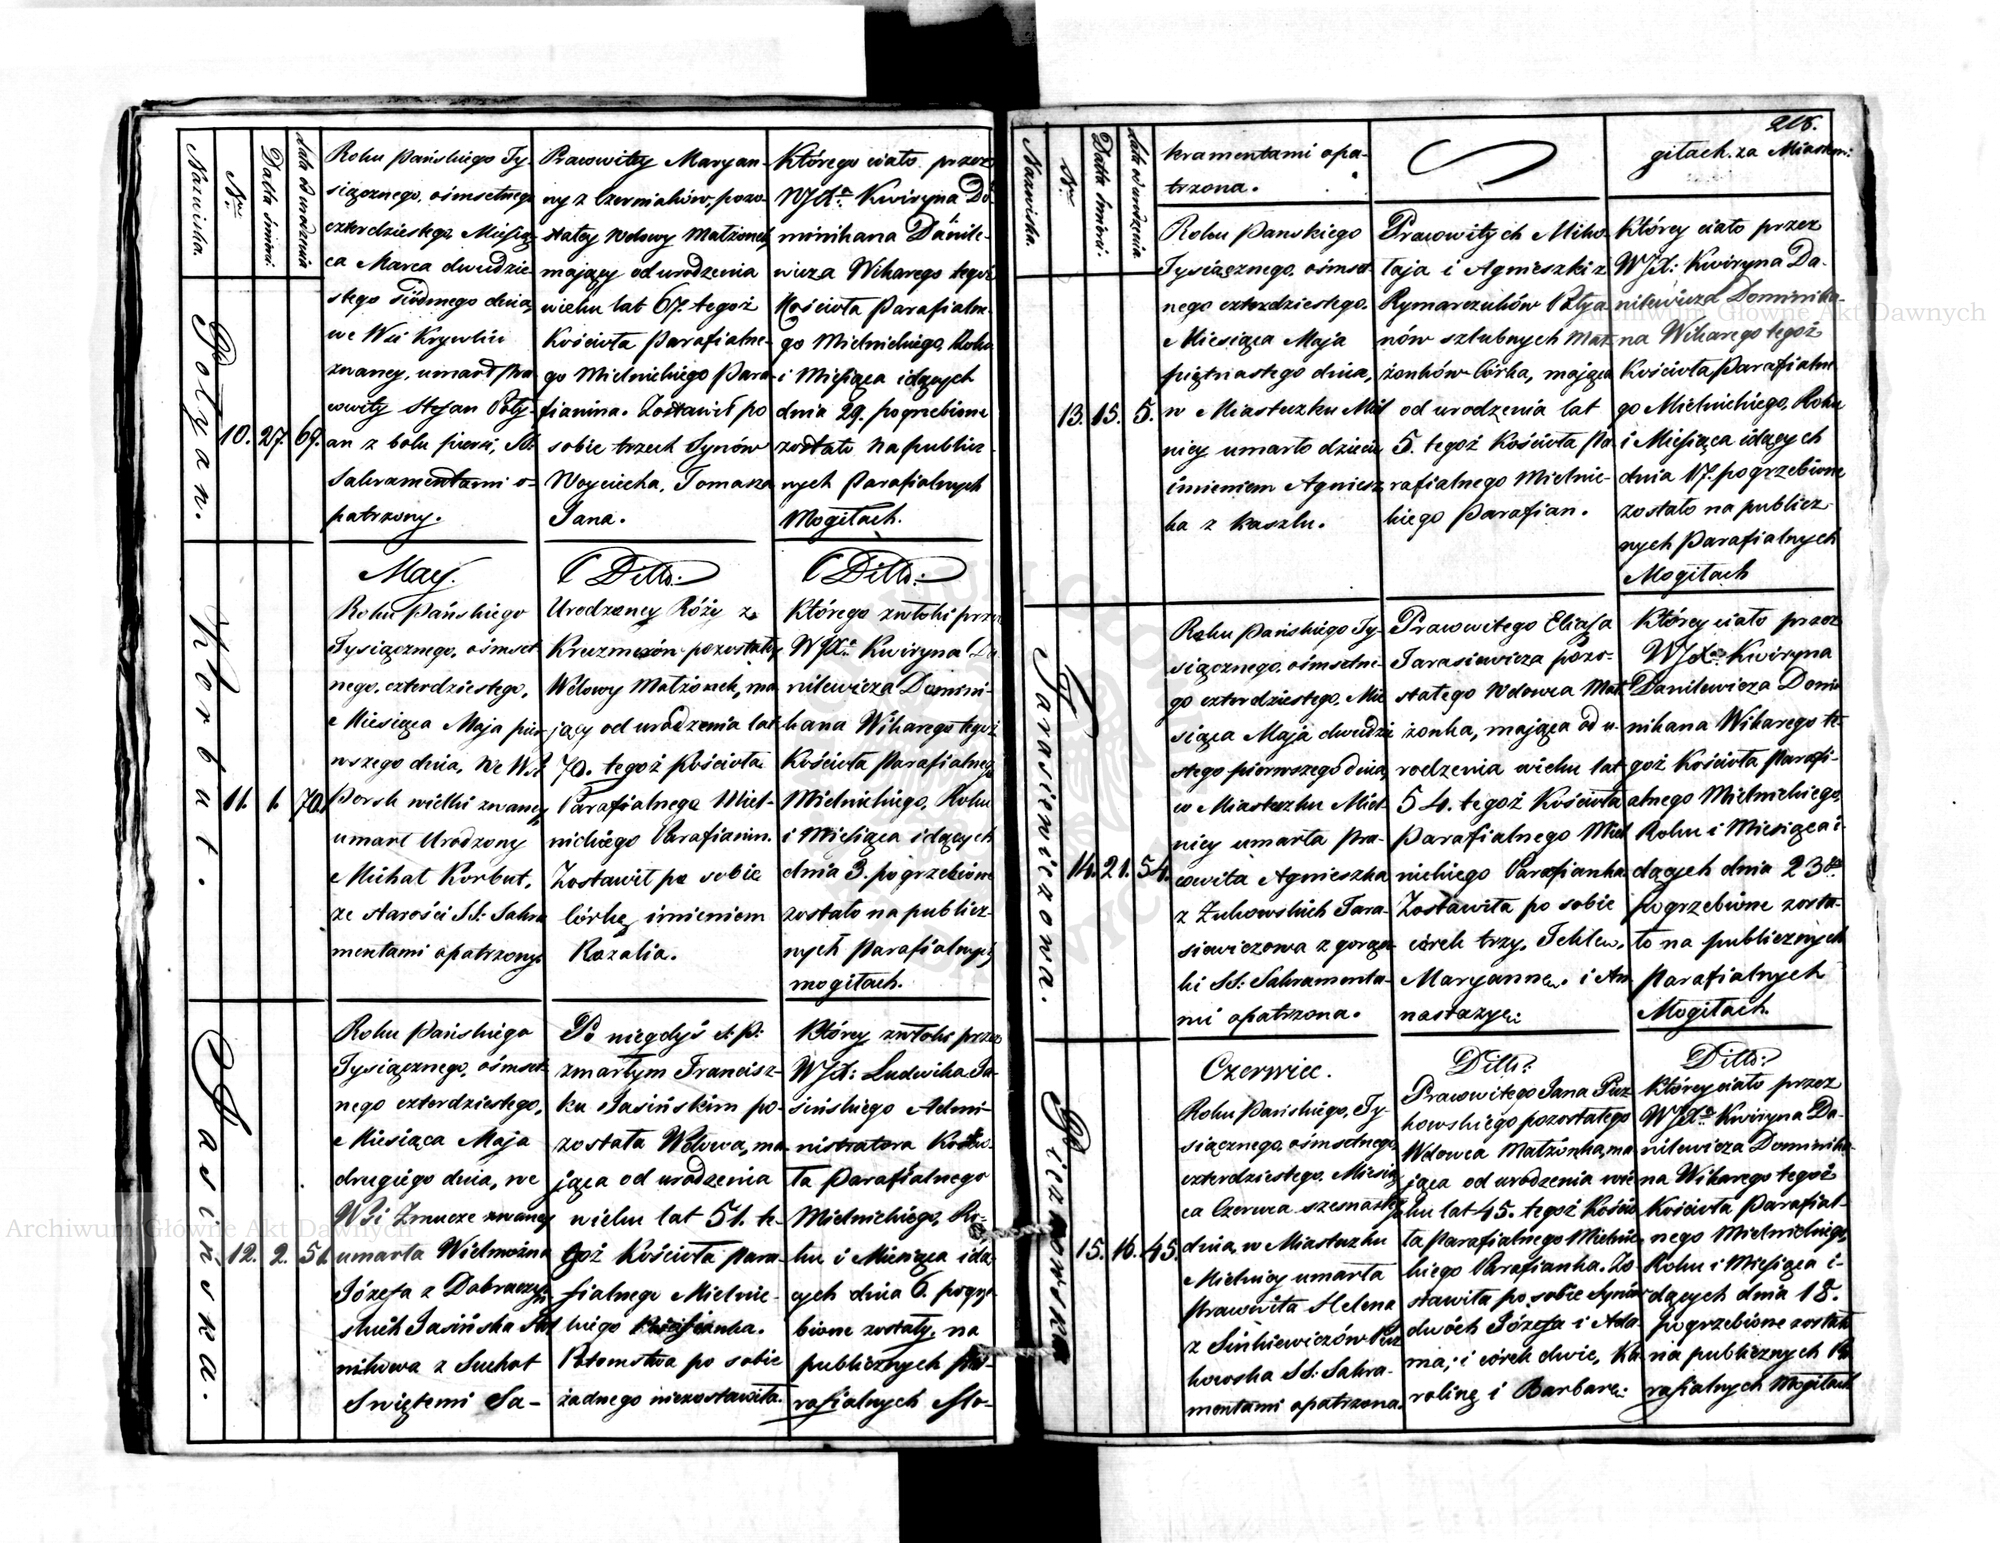 Nazwiska.
Nr.
Datta śmierci
data od urodzenia
Polyan.
10. 27. 67.
Roku Pańskiego Ty-
siącznego, ośmsetnego
czterdziestego, Miesią-
ca Marca dwudzie-
stego siódmego dnia,
we Wsi Krywlin
zwaney, umarł Pra-
cowity Stefan Poly-
an z bolu piersi, SSt
Sakramentami o-
patrzony.
Pracowitey Maryan-
ny z Czerniaków, pozo-
stałey Wdowy Małżonek,
mający od urodzenia
wieku lat 67. tegoż
Kościoła Parafialne-
go Mielnickiego Para-
fianina. Zostawił po
sobie trzech Synów
Woyciecha, Tomasza
Jana.
Którego ciało przez
WJXa. Kwiryna Do-
minikana Danile-
wicza Wikarego tegoż
Kościoła Parafialne-
go Mielnickiego, Roku
i Miesiąca idących
dnia 29. pogrzebione
zostało na publicz-
nych Parafialnych
Mogiłach.
Korbut.
11. 1. 70.
May.
Roku Pańskiego
Tysiącznego, ośmset
nego, czterdziestego,
Miesiąca Maja pier-
wszego dnia, we Wsi
Porsk wielki zwaney
umarł Urodzony
Michał Korbut,
ze starości SS: Sakra
mentami opatrzony.
Ditto:
Urodzoney Róży z
pozostałey
Wdowy Małżonek, ma
jący od urodzenia lat
70. tegoż Kościoła
Parafialnego Miel-
nickiego Parafianin.
Zostawił po sobie
Córkę imieniem
Rozalia.
Ditto:
Którego zwłoki przez
WJXa. Kwiryna Da-
nilewicza Domini-
kana Wikarego tegoż
Kościoła Parafialnego
Mielnickiego, Roku
i Miesiąca idących
dnia 3. pogrzebione
zostało na publicz-
nych Parafialnych
mogiłach.
Jasińska.
12. 2. 51.
Roku Pańskiego
Tysiącznego, ośmset
nego czterdziestego,
Miesiąca Maja
drugiego dnia, we
Wsi zwaney
umarła Wielmożna
Józefa z
skich Jasińska
z Suchot
Swiętemi Sa-
Po niegdyś ś: p:
zmarłym Francisz-
ku Jasińskim po-
została Wdowa, ma-
jąca od urodzenia
wieku lat 51. te-
goż Kościoła Para-
fialnego Mielnic-
kiego Parafianka.
Potomstwa po sobie
żadnego niezostawiła.
Którey zwłoki przez
WJX: Ludwika Ja-
sińskiego Admi-
nistratora Kościo-
ła Parafialnego
Mielnickiego, Ro-
ku i Miesiąca idą-
cych dnia 6. pogrze
bione zostały, na
publicznych Pa-
rafialnych Mo-
Nazwiska.
Nr.
Datta śmierci.
data od urodzenia
kramentami opa-
trzona.
giłach. za Miastem:
13. 15. 5.
Roku Pańskiego
Tysiącznego, ośmset
nego czterdziestego,
Miesiąca Maja
piętnastego dnia,
w Miasteczku Miel
nicy umarło dziecie
imieniem Agniesz
ka z kaszlu.
Pracowitych Miko-
łaja i Agnieszki z
Rymarczuków Polya-
nów szlubnych Mał-
żonków Córka, mająca
od urodzenia lat
5. tegoż Kościoła Pa
rafialnego Mielnic-
kiego Parafian.
Którey ciało przez
WJX: Kwiryna Da-
nilewicza Dominika-
na Wikarego tegoż
Kościoła Parafialne
go Mielnickiego, Roku
i Miesiąca idących
dnia 17. pogrzebione
zostało na publicz-
nych Parafialnych
Mogiłach
Tarasiewiczowa.
14. 21. 54.
Roku Pańskiego Ty-
siącznego, ośmsetne-
go czterdziestego, Mie
siąca Maja dwudzi
stego pierwszego dnia,
w Miasteczku Miel-
nicy umarła Pra-
cowita Agnieszka
z Żukowskich Tara-
siewiczowa z gorącz-
ki SS: Sakramenta-
mi opatrzona.
Pracowitego Eliasza
Tarasiewicza pozo-
stałego Wdowca Mał
żonka, mająca od u-
rodzenia wieku lat
54. tegoż Kościoła
Parafialnego Miel
nickiego Parafianka
Zostawiła po sobie
córek trzy, Teklew,
Maryannew. i An
nastazyę:
Którey ciało przez
WJXa. Kwiryna
Danilewicza Domi
nikana Wikarego te-
goż Kościoła Parafi-
alnego Mielnickiego,
Roku i Miesiąca i-
dących dnia 23go
pogrzebione zosta-
ło na publicznych
Parafialnych
Mogiłach.
15. 16. 45.
Czerwiec.
Roku Pańskiego, Ty-
siącznego, ośmsetnego,
czterdziestego, Miesią
ca Czerwca szesnaste
dnia, w Miasteczku
Mielnicy umarła
Pracowita Helena
z Sinkiewiczów
kowska SS: Sakra-
mentami opatrzona.
Ditto:
Pracowitego Jana
kowskiego pozostałego
Wdowca Małżonka, ma
jąca od urodzenia wie
ku lat 45. tegoż Kościo
ła Parafialnego Mielnic-
kiego Parafianka. Zo-
stawiła po sobie Synów
dwóch Józefa i Ada-
ma, i córek dwie, Ka
rolinę i Barbarę:
Ditto:
Którey ciało przez
WJXa Kwiryna Da-
nilewicza Dominika-
na Wikarego tegoż
Kościoła Parafial-
nego Mielnickiego,
Roku i Miesiąca i-
dących dnia 18.
pogrzebione zostało
na publicznych Pa
rafialnych Mogiłach
Archiwum Główne Akt Dawnych
Archiwum Główne Akt Dawnych